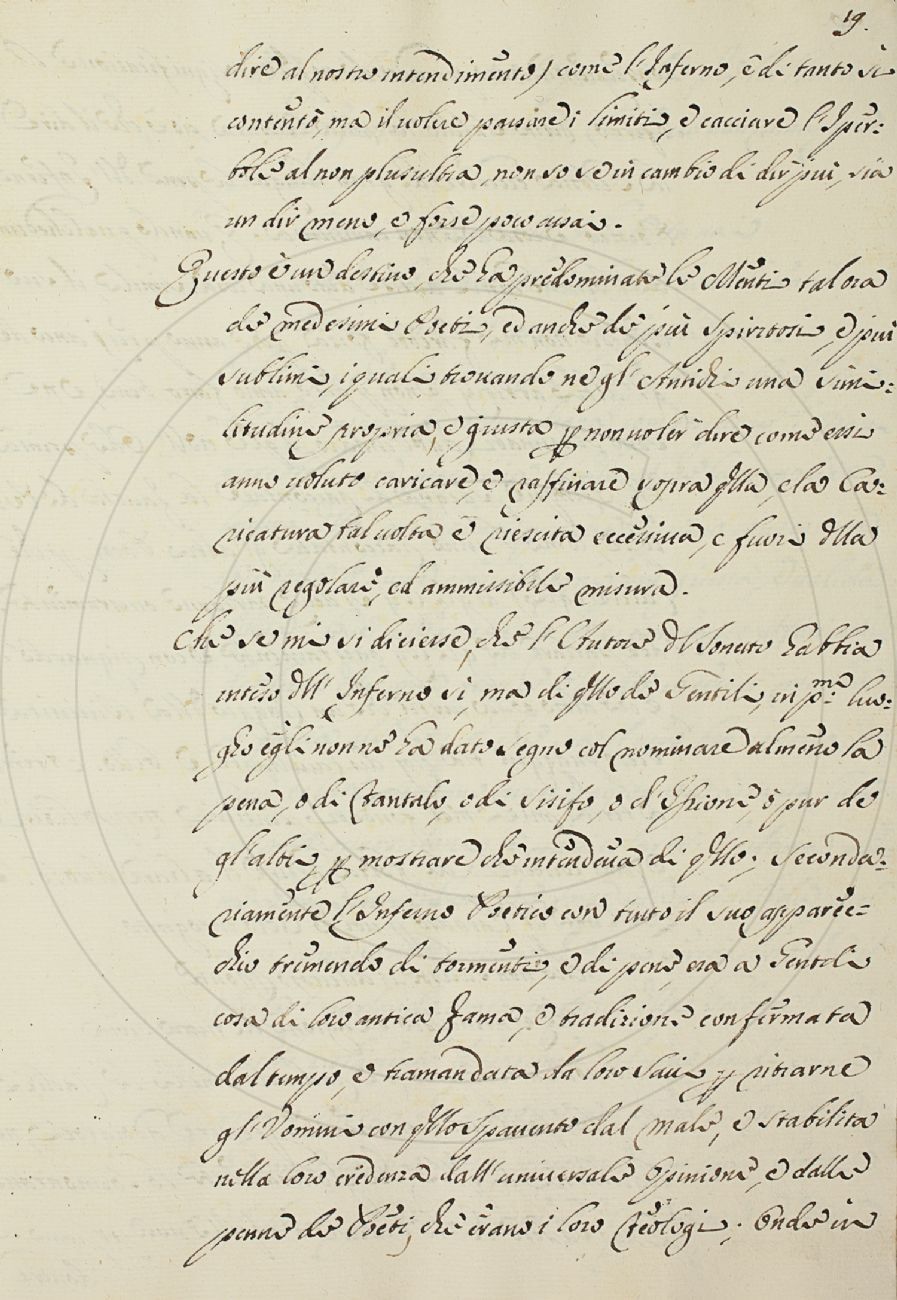 19.
dire al nostro intendimento) come l'Inferno, è di tanto si
contentò, ma il volere passare i limiti, e cacciare l'Iper=
bole al non plus ultra, non so se in cambio di dir più, sia
un dir meno, e forse poco assai.
Questo è un destino, che ha predominato le Menti talora
de medesimi Poeti, ed anche de più spiritosi, e più
sublimi, i quali trovando ne gl'Antichi una simi=
litudine propria, e giusta p non voler dire come essi
anno voluto caricare, e raffinare sopra qlla, e la Ca=
ricatura tal volta è riescita eccessiva, e fuori dlla
più regolare, ed ammissibile misura.
Che se mi si dicesse, che l'Autore dl Sonetto habbia
inteso dll'Inferno sì, ma di qllo de Gentili, in p.mo luo=
gho egli non ne ha dato segno col nominare almeno la
pena, o di Tantalo, o di Sisifo, o d'Issione, o pur de
gl'altri, p mostrare che intendeva di qllo; seconda=
riamente l'Inferno Poetico con tutto il suo apparec=
chio tremendo di tormenti, e di pene, era a Gentili
cosa di loro antica Fama, e tradizione confermata
dal tempo, e tramandata da loro Savi p ritrarne
gl'Uomini con qllo spavento dal male, e stabilita
nella loro credenza dall'universale Opinione, e dalle
penne de Poeti, che erano i loro Teologi; Onde in